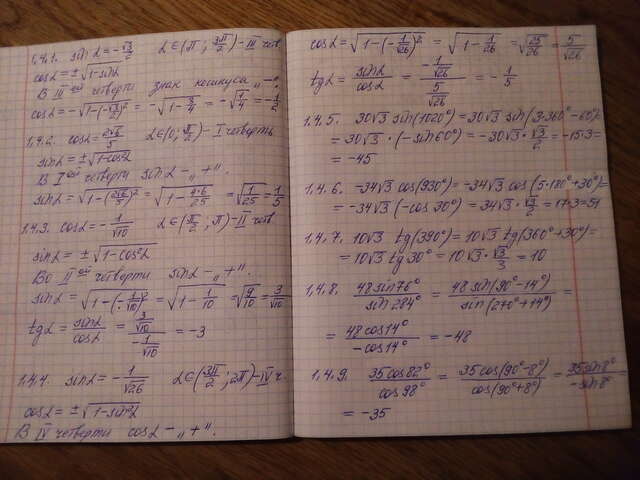 1.4.1. sin α = -√3/2   α ∈ (π; 3π/2) - III четв
cos α = ±√(1 - sin²α)
В III ой четверти знак косинуса „-".
cos α = -√(1 - (-√3/2)²) = -√(1 - 3/4) = -√(1/4) = -1/2
1.4.2. cos α = 2√6/5   α ∈ (0; π/2) - I четверть
sin α = ±√(1 - cos²α)
В I ой четверти sin α - „+".
sin α = √(1 - (2√6/5)²) = √(1 - 4·6/25) = √(1/25) = 1/5
1.4.3. cos α = -1/√10   α ∈ (π/2; π) - II четв
sin α = ±√(1 - cos²α)
Во II ой четверти sin α - „+".
sin α = √(1 - (-1/√10)²) = √(1 - 1/10) = √(9/10) = 3/√10
tg α = sin α/cos α = (3/√10)/(-1/√10) = -3
1.4.4. sin α = -1/√26   α ∈ (3π/2; 2π) - IV ч.
cos α = ±√(1 - sin²α)
В IV четверти cos α - „+".
cos α = √(1 - (-1/√26)²) = √(1 - 1/26) = √(25/26) = 5/√26
tg α = sin α/cos α = (-1/√26)/(5/√26) = -1/5
1.4.5. 30√3 sin(1020°) = 30√3 sin(3·360° - 60°) =
= 30√3 · (-sin 60°) = -30√3 · √3/2 = -15·3 =
= -45
1.4.6. -34√3 cos(930°) = -34√3 cos(5·180° + 30°) =
= -34√3 (-cos 30°) = 34√3 · √3/2 = 17·3 = 51
1.4.7. 10√3 tg(390°) = 10√3 tg(360° + 30°) =
= 10√3 tg 30° = 10√3 · √3/3 = 10
1.4.8. 48 sin 76°/sin 284° = 48 sin(90° - 14°)/sin(270° + 14°) =
= 48 cos 14°/-cos 14° = -48
1.4.9. 35 cos 82°/cos 98° = 35 cos(90° - 8°)/cos(90° + 8°) = 35 sin 8°/-sin 8° =
= -35